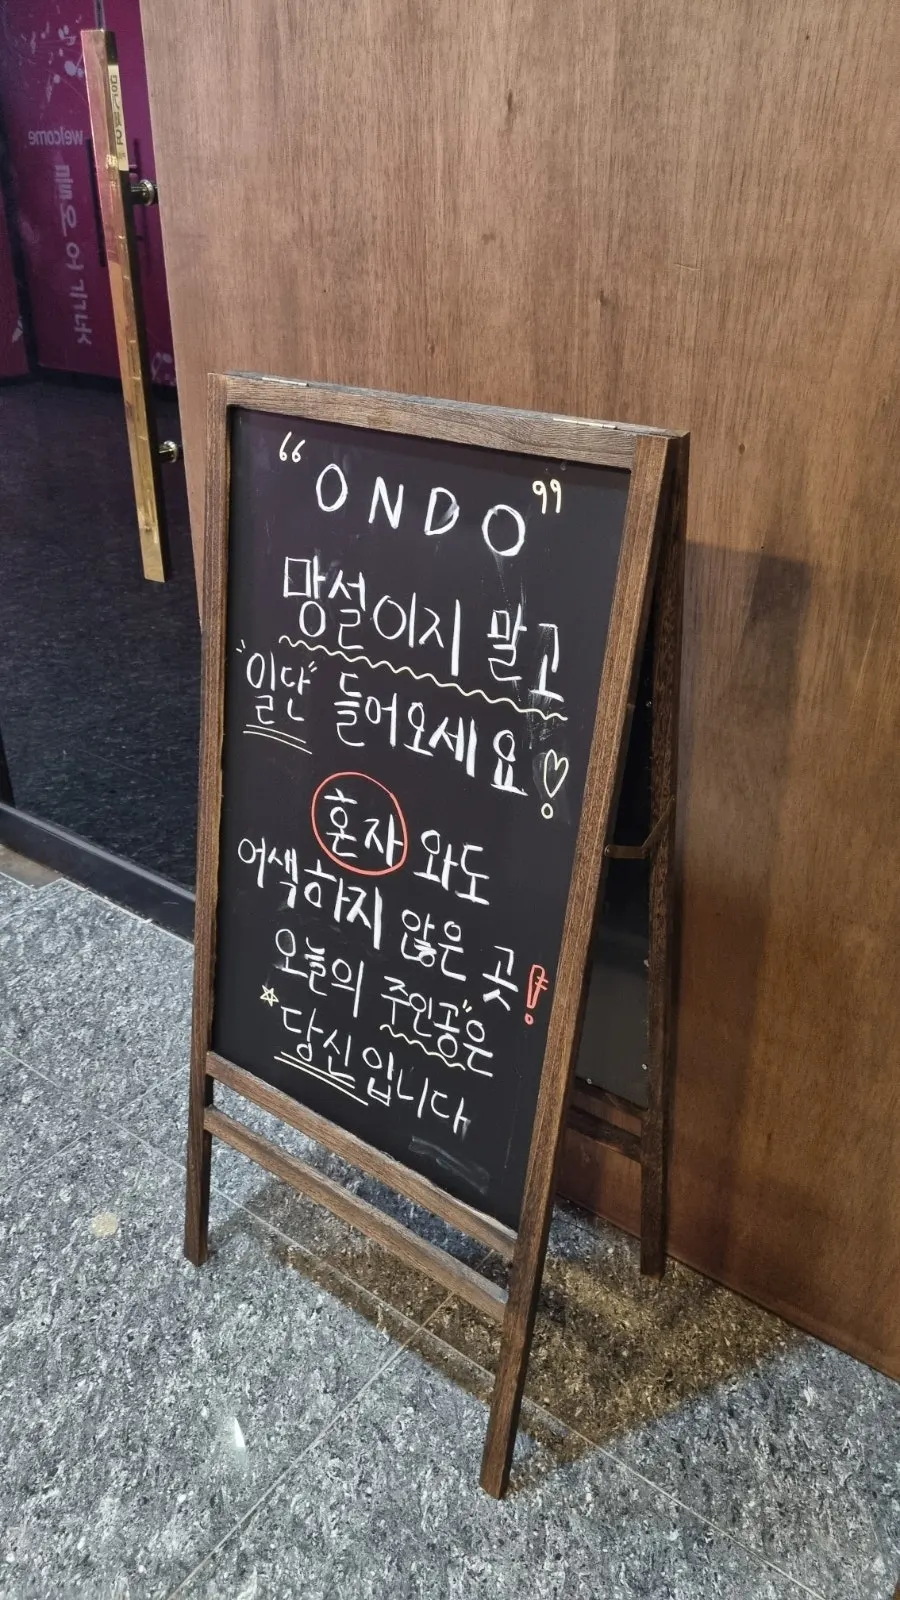 "ONDO"
망설이지 말고
"일단" 들어오세요♡
혼자 와도
어색하지 않은 곳!
오늘의 주인공"은
☆당신입니다
welcome